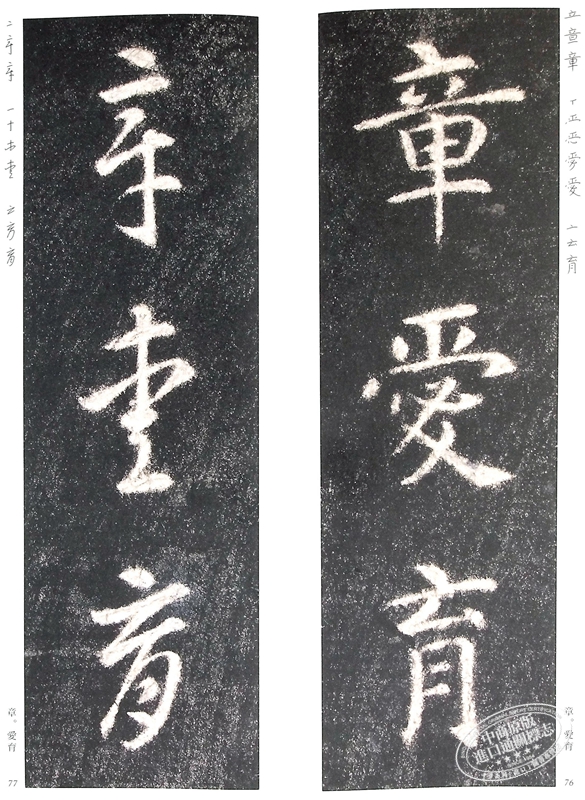 章愛育
章。愛育
76
章愛育
章。愛育
77
中商原版
進口通關標志